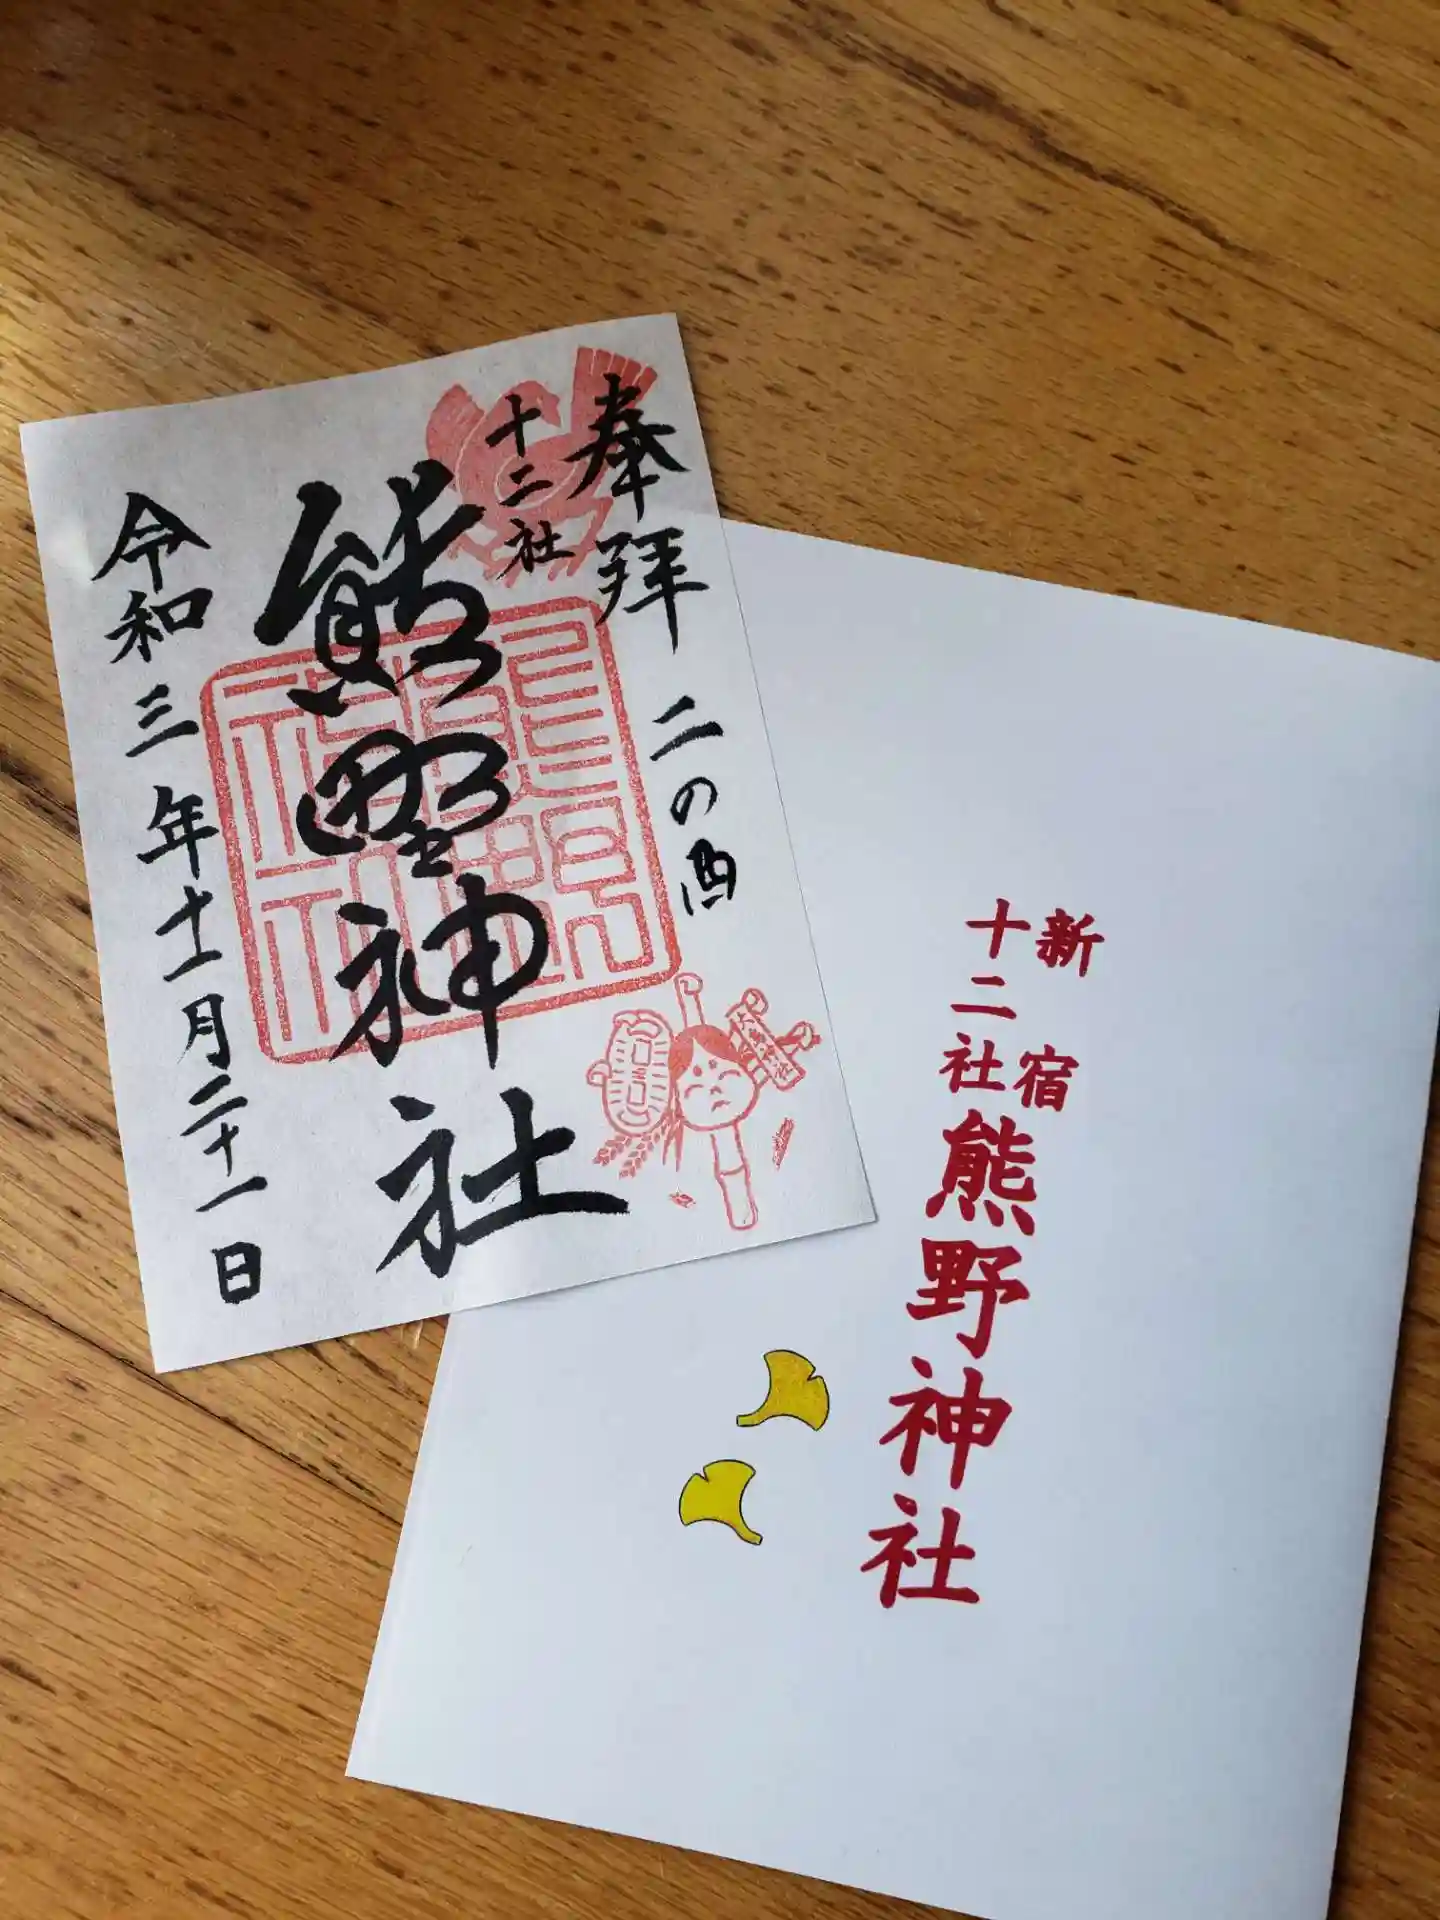 奉拝 二の酉
十二社
熊野神社
令和三年十一月二十一日
新宿
十二社
熊野神社